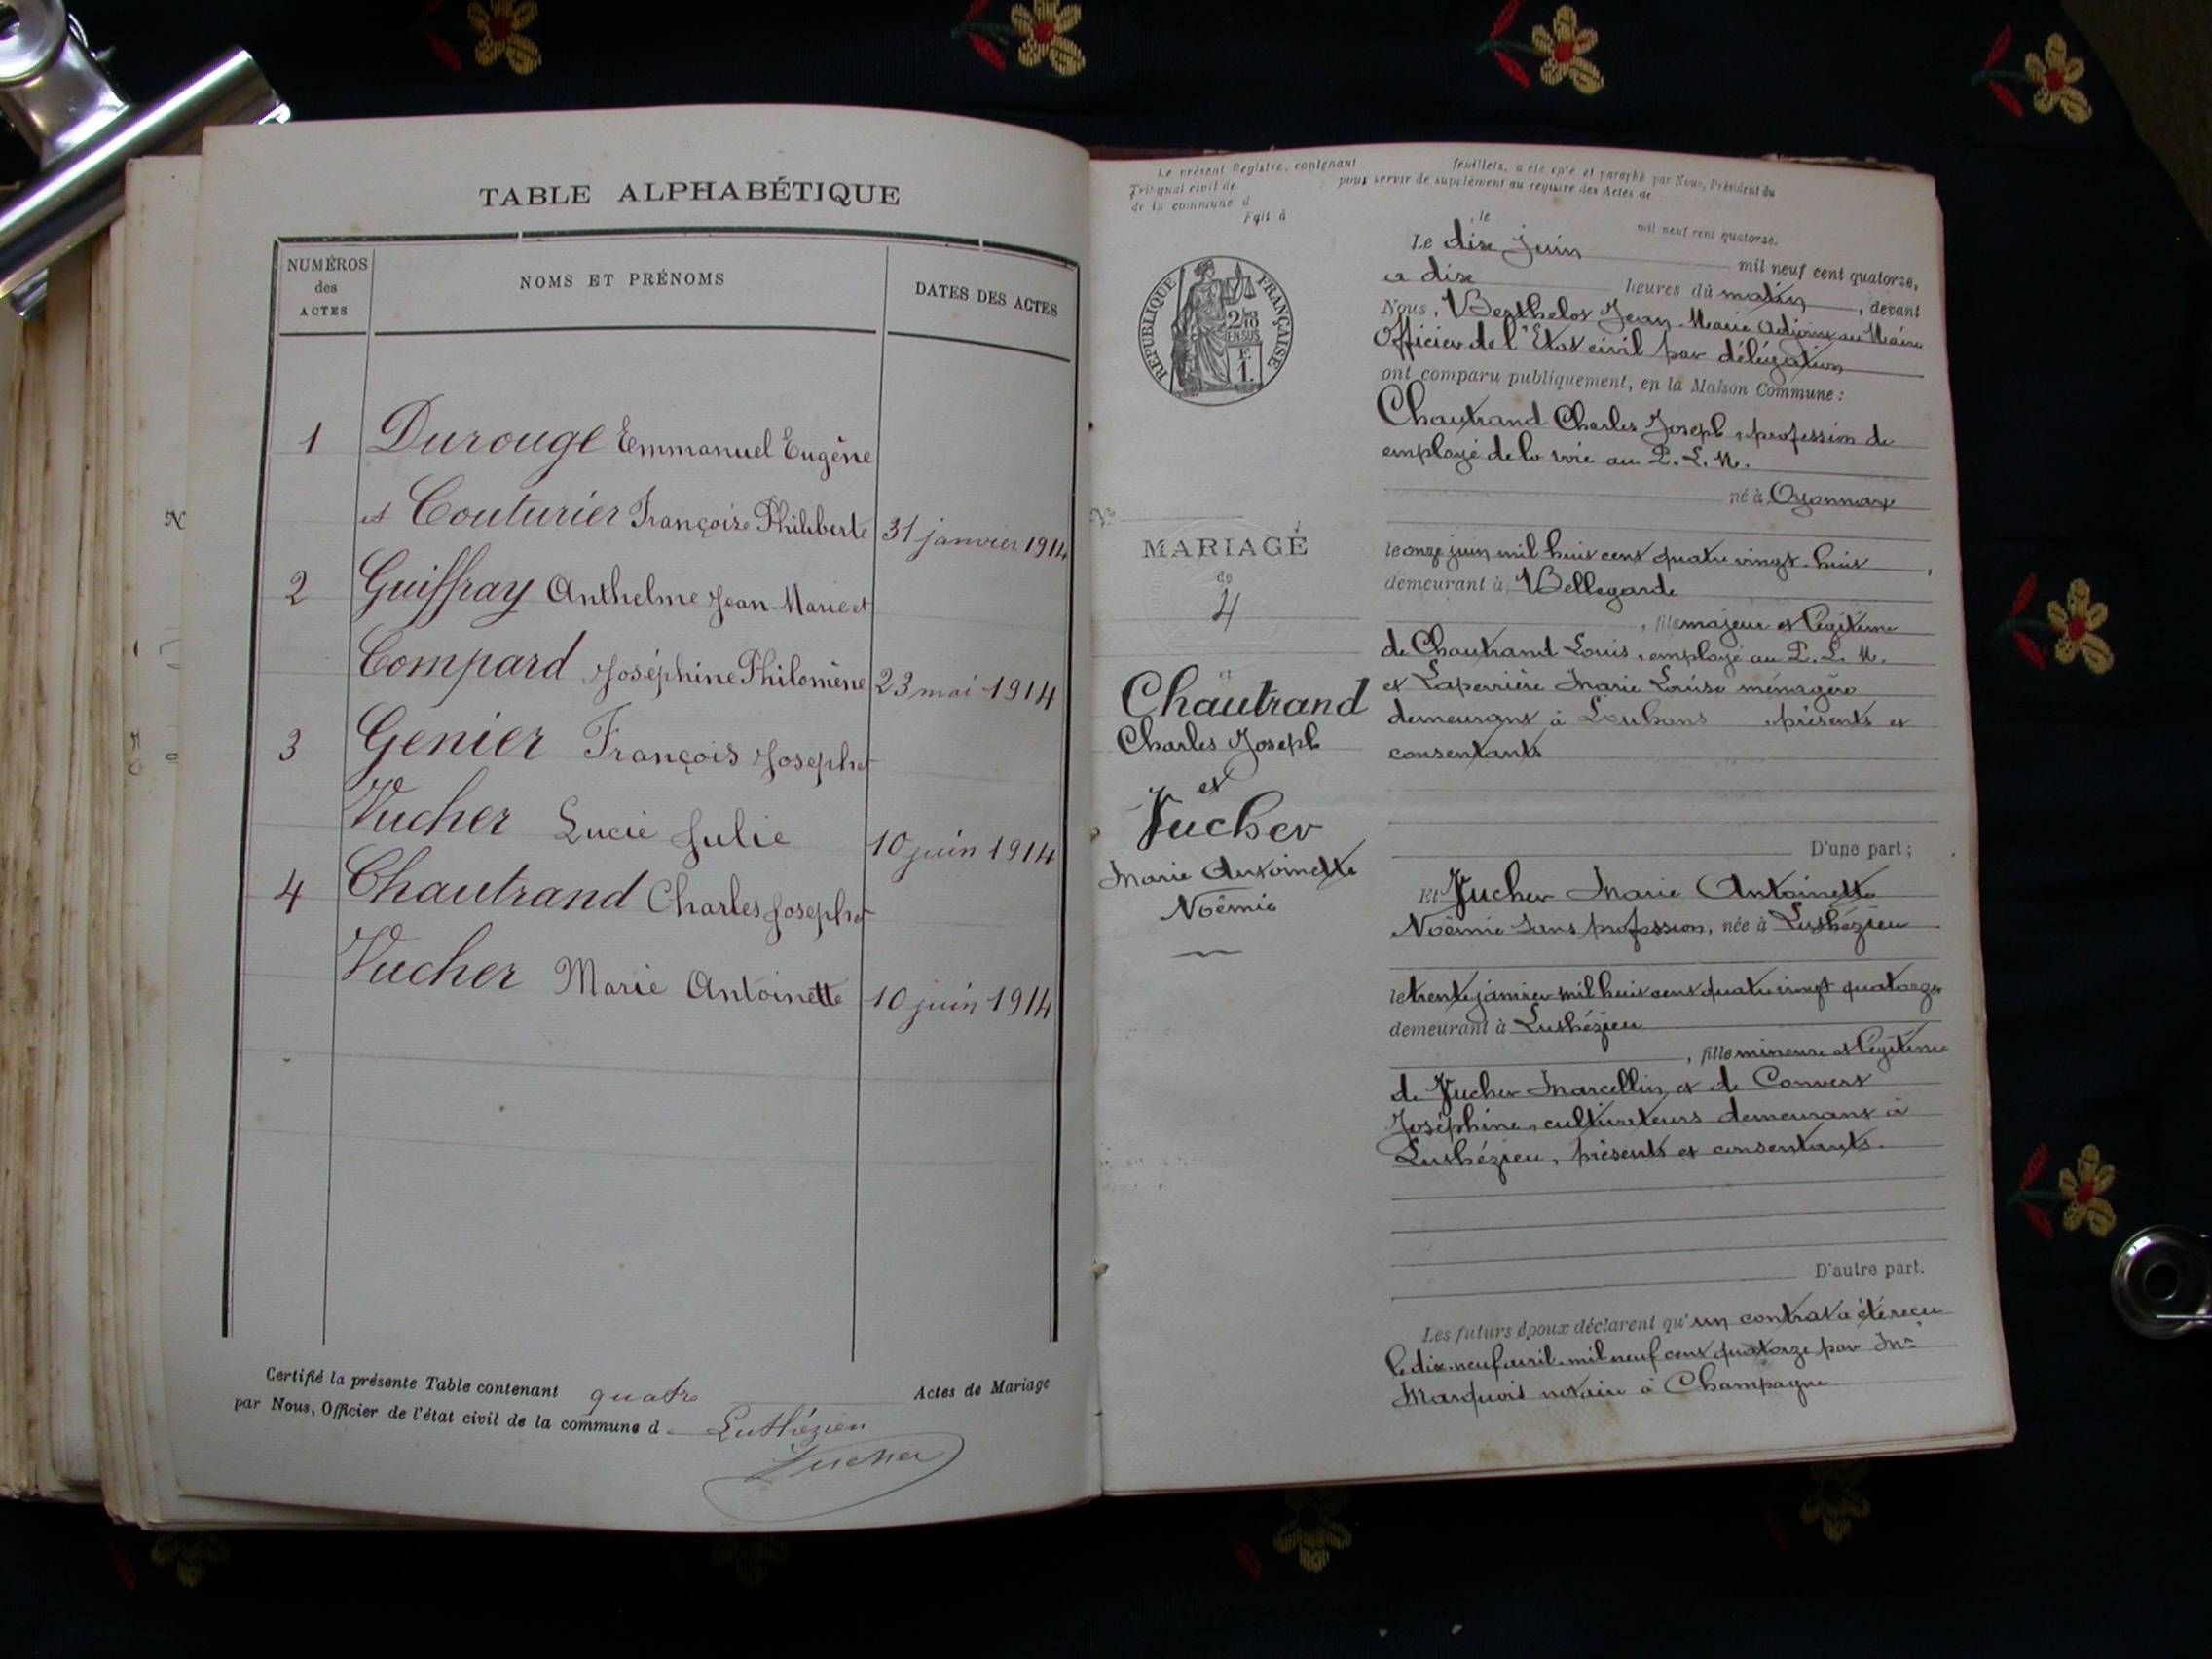 TABLE ALPHABÉTIQUE
NUMÉROS
des
ACTES
NOMS ET PRÉNOMS
DATES DES ACTES
1 Durouge Emmanuel Eugène
et Couturier Françoise Philiberte 31 janvier 1914
2 Guiffray Anthelme Jean-Marie et
Compard Joséphine Philomène 23 mai 1914
3 Genier François Joseph et
Vucher Lucie Julie 10 juin 1914
4 Chautrand Charles Joseph et
Vucher Marie Antoinette 10 juin 1914
Certifié la présente Table contenant quatre Actes de Mariage
par Nous, Officier de l'état civil de la commune d Luthézieu
Vucher
Le présent Registre, contenant feuillets, a été coté et paraphé par Nous, Président du
Tribunal civil de pour servir de supplément au registre des Actes de
de la commune d
Fait à , le mil neuf cent quatorze.
RÉPUBLIQUE FRANÇAISE
2/10
EN SUS
F.
1.
N
MARIAGE
de
4
et
Chautrand
Charles Joseph
et
Vucher
Marie Antoinette
Noëmie
Le dix juin mil neuf cent quatorze,
à dix heures du matin, devant
Nous, Berthelot Jean-Marie Adjoint au Maire
Officier de l'Etat civil par délégation
ont comparu publiquement, en la Maison Commune :
Chautrand Charles Joseph, profession de
employé de la voie au P. L. M.
né à Oyonnax
le onze juin mil huit cent quatre vingt-huit,
demeurant à Bellegarde
, fils majeur et légitime
de Chautrand Louis, employé au P. L. M.
et Laperrière Marie Louise ménagère
demeurant à Louhans, présents et
consentants
D'une part ;
Et Vucher Marie Antoinette
Noëmie sans profession, née à Luthézieu
le trente janvier mil huit cent quatre vingt quatorze
demeurant à Luthézieu
, fille mineure et légitime
de Vucher Marcellin et de Convert
Joséphine, cultivateurs demeurant à
Luthézieu, présents et consentants.
D'autre part.
Les futurs époux déclarent qu'un contrat a été reçu
le dix-neuf avril mil neuf cent quatorze par Me
Marquois notaire à Champagne